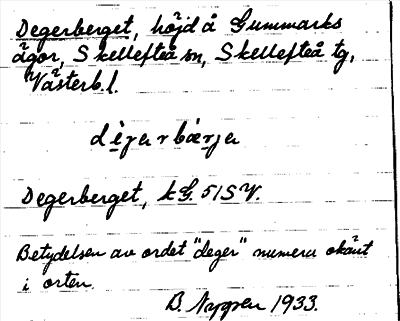 Degerberget, höjd å Gummarks
ägor, Skellefteå sn, Skellefteå tg,
Västerb.l.
dègarbærja
Degerberget, kG. 51SV.
Betydelsen av ordet "deger" numera okänt
i orten.
B. Nygren 1933.